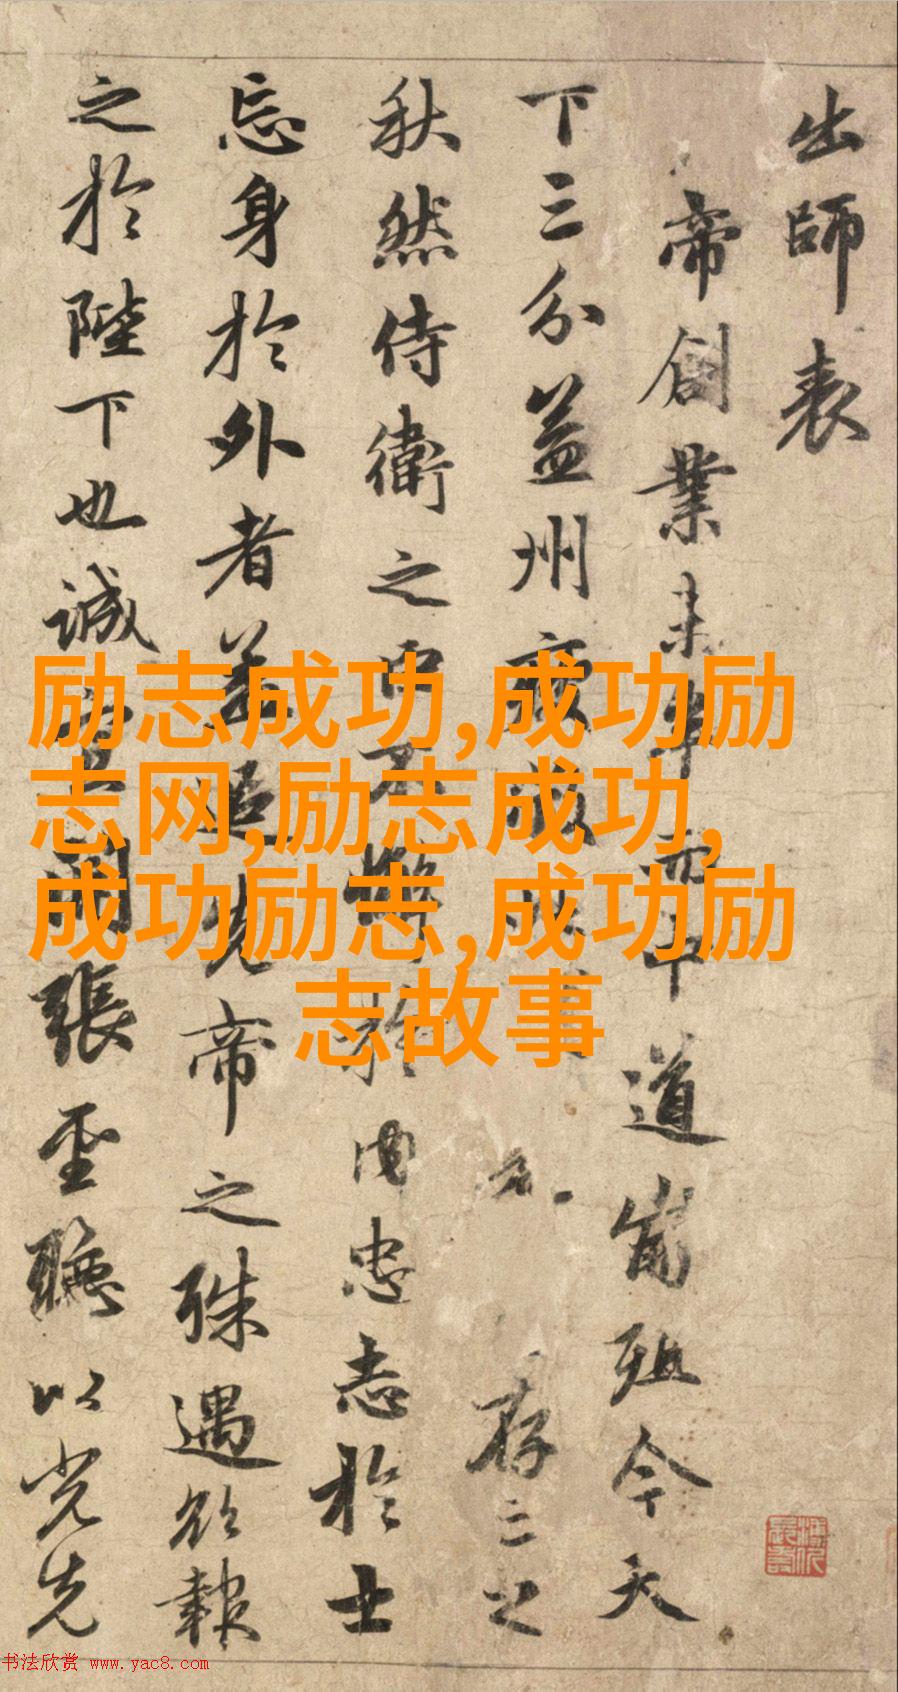 出師表
帝創業未半而中道崩殂今天
下三分益州疲敝存之
秋然侍衛之臣不懈於内忠志於士
忘身於外者蓋追先帝之殊遇欲報
之於陛下也誠宜開張聖聽以光先
励志成功,成功励
志网,励志成功,
成功励志,成功励
志故事
书法欣赏 www.yac8.com